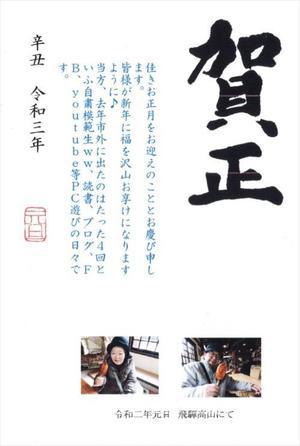 賀正
佳きお正月をお迎えのこととお慶び申し
ます。
皆様が新年に福を沢山お享けになります
ように♪
当方、去年市外に出たのはたった4回と
いふ自粛模範生ww、読書、ブログ、F
B、youtube等PC遊びの日々で
す。
辛丑 令和三年
元旦
令和二年元日 飛騨高山にて